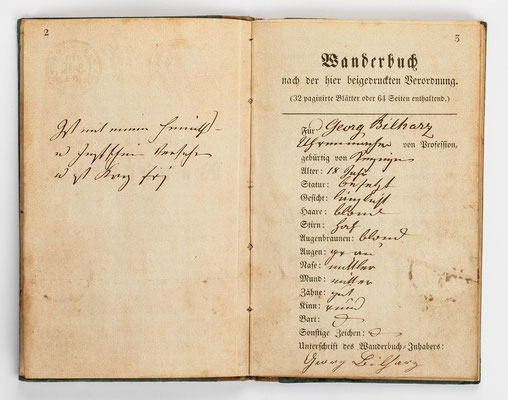 2
Ist mit einem Heimath-
u
3
Wanderbuch
nach der hier beigedruckten Verordnung.
(32 paginirte Blätter oder 64 Seiten enthaltend.)
Für Georg Bilharz
Uhrenmacher von Profession,
gebürtig von
Alter: 18 Jahr
Statur: besetzt
Gesicht: länglicht
Haare: blond
Stirn: hoch
Augenbraunen: blond
Augen: grau
Nase: mittler
Mund: mittler
Zähne: gut
Kinn: rund
Bart:
Sonstige Zeichen:
Unterschrift des Wanderbuch-Inhabers:
Georg Bilharz